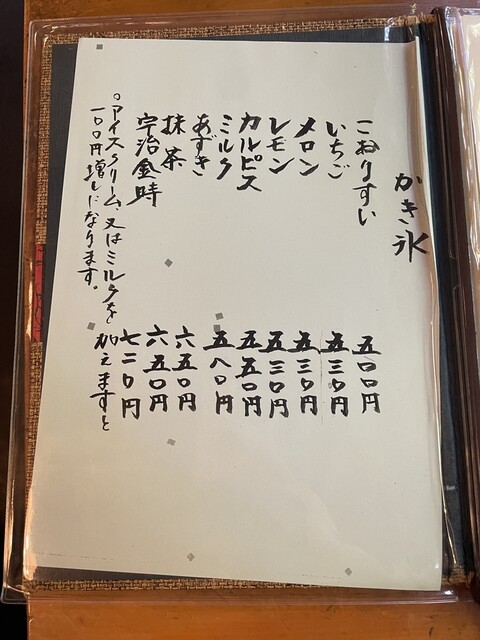 かき氷
こおりすい 五〇〇円
いちご 五三〇円
メロン 五三〇円
レモン 五三〇円
カルピス 五五〇円
ミルク 五八〇円
あずき 六五〇円
抹茶 六五〇円
宇治金時 七二〇円
○アイスクリーム、又はミルクを加えますと
一〇〇円増しになります。